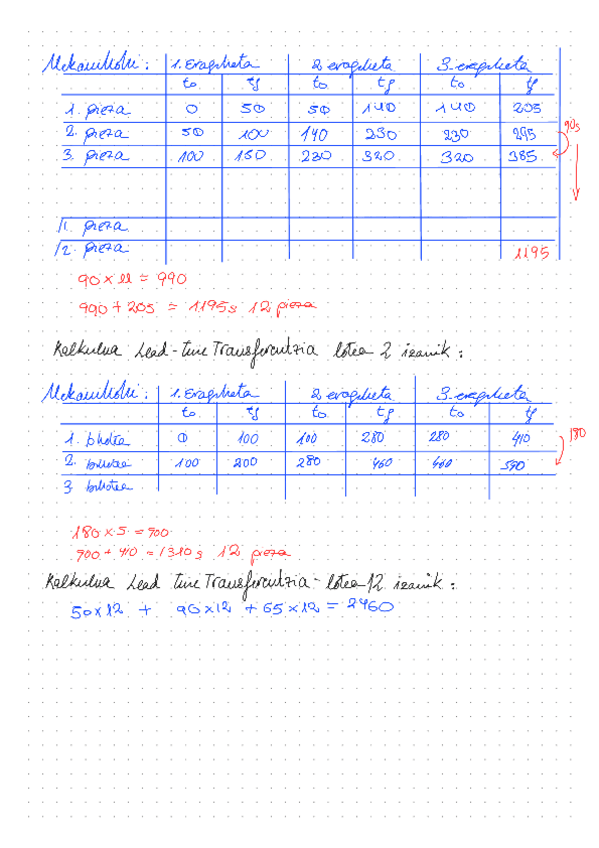 Mekanikoki: 1. Eragiketa 2. eragiketa 3. eragiketa
to tf to tf to tf
1. pieza 0 50 50 140 140 205
2. pieza 50 100 140 230 230 295 90s
3. pieza 100 150 230 320 320 385
11. pieza
12. pieza 1195
90 x 11 = 990
990 + 205 = 1195s 12 pieza
Kalkulua Lead-time Transferentzia lotea 2 izanik:
Mekanikoki: 1. Eragiketa 2. eragiketa 3. eragiketa
to tf to tf to tf
1. 0 100 100 280 280 410 180
2. 100 200 280 460 460 590
3
180 x 5 = 900
900 + 410 = 1310 s 12 pieza
Kalkulua Lead time Transferentzia-lotea 12 izanik:
50x12 + 90x12 + 65x12 = 2460